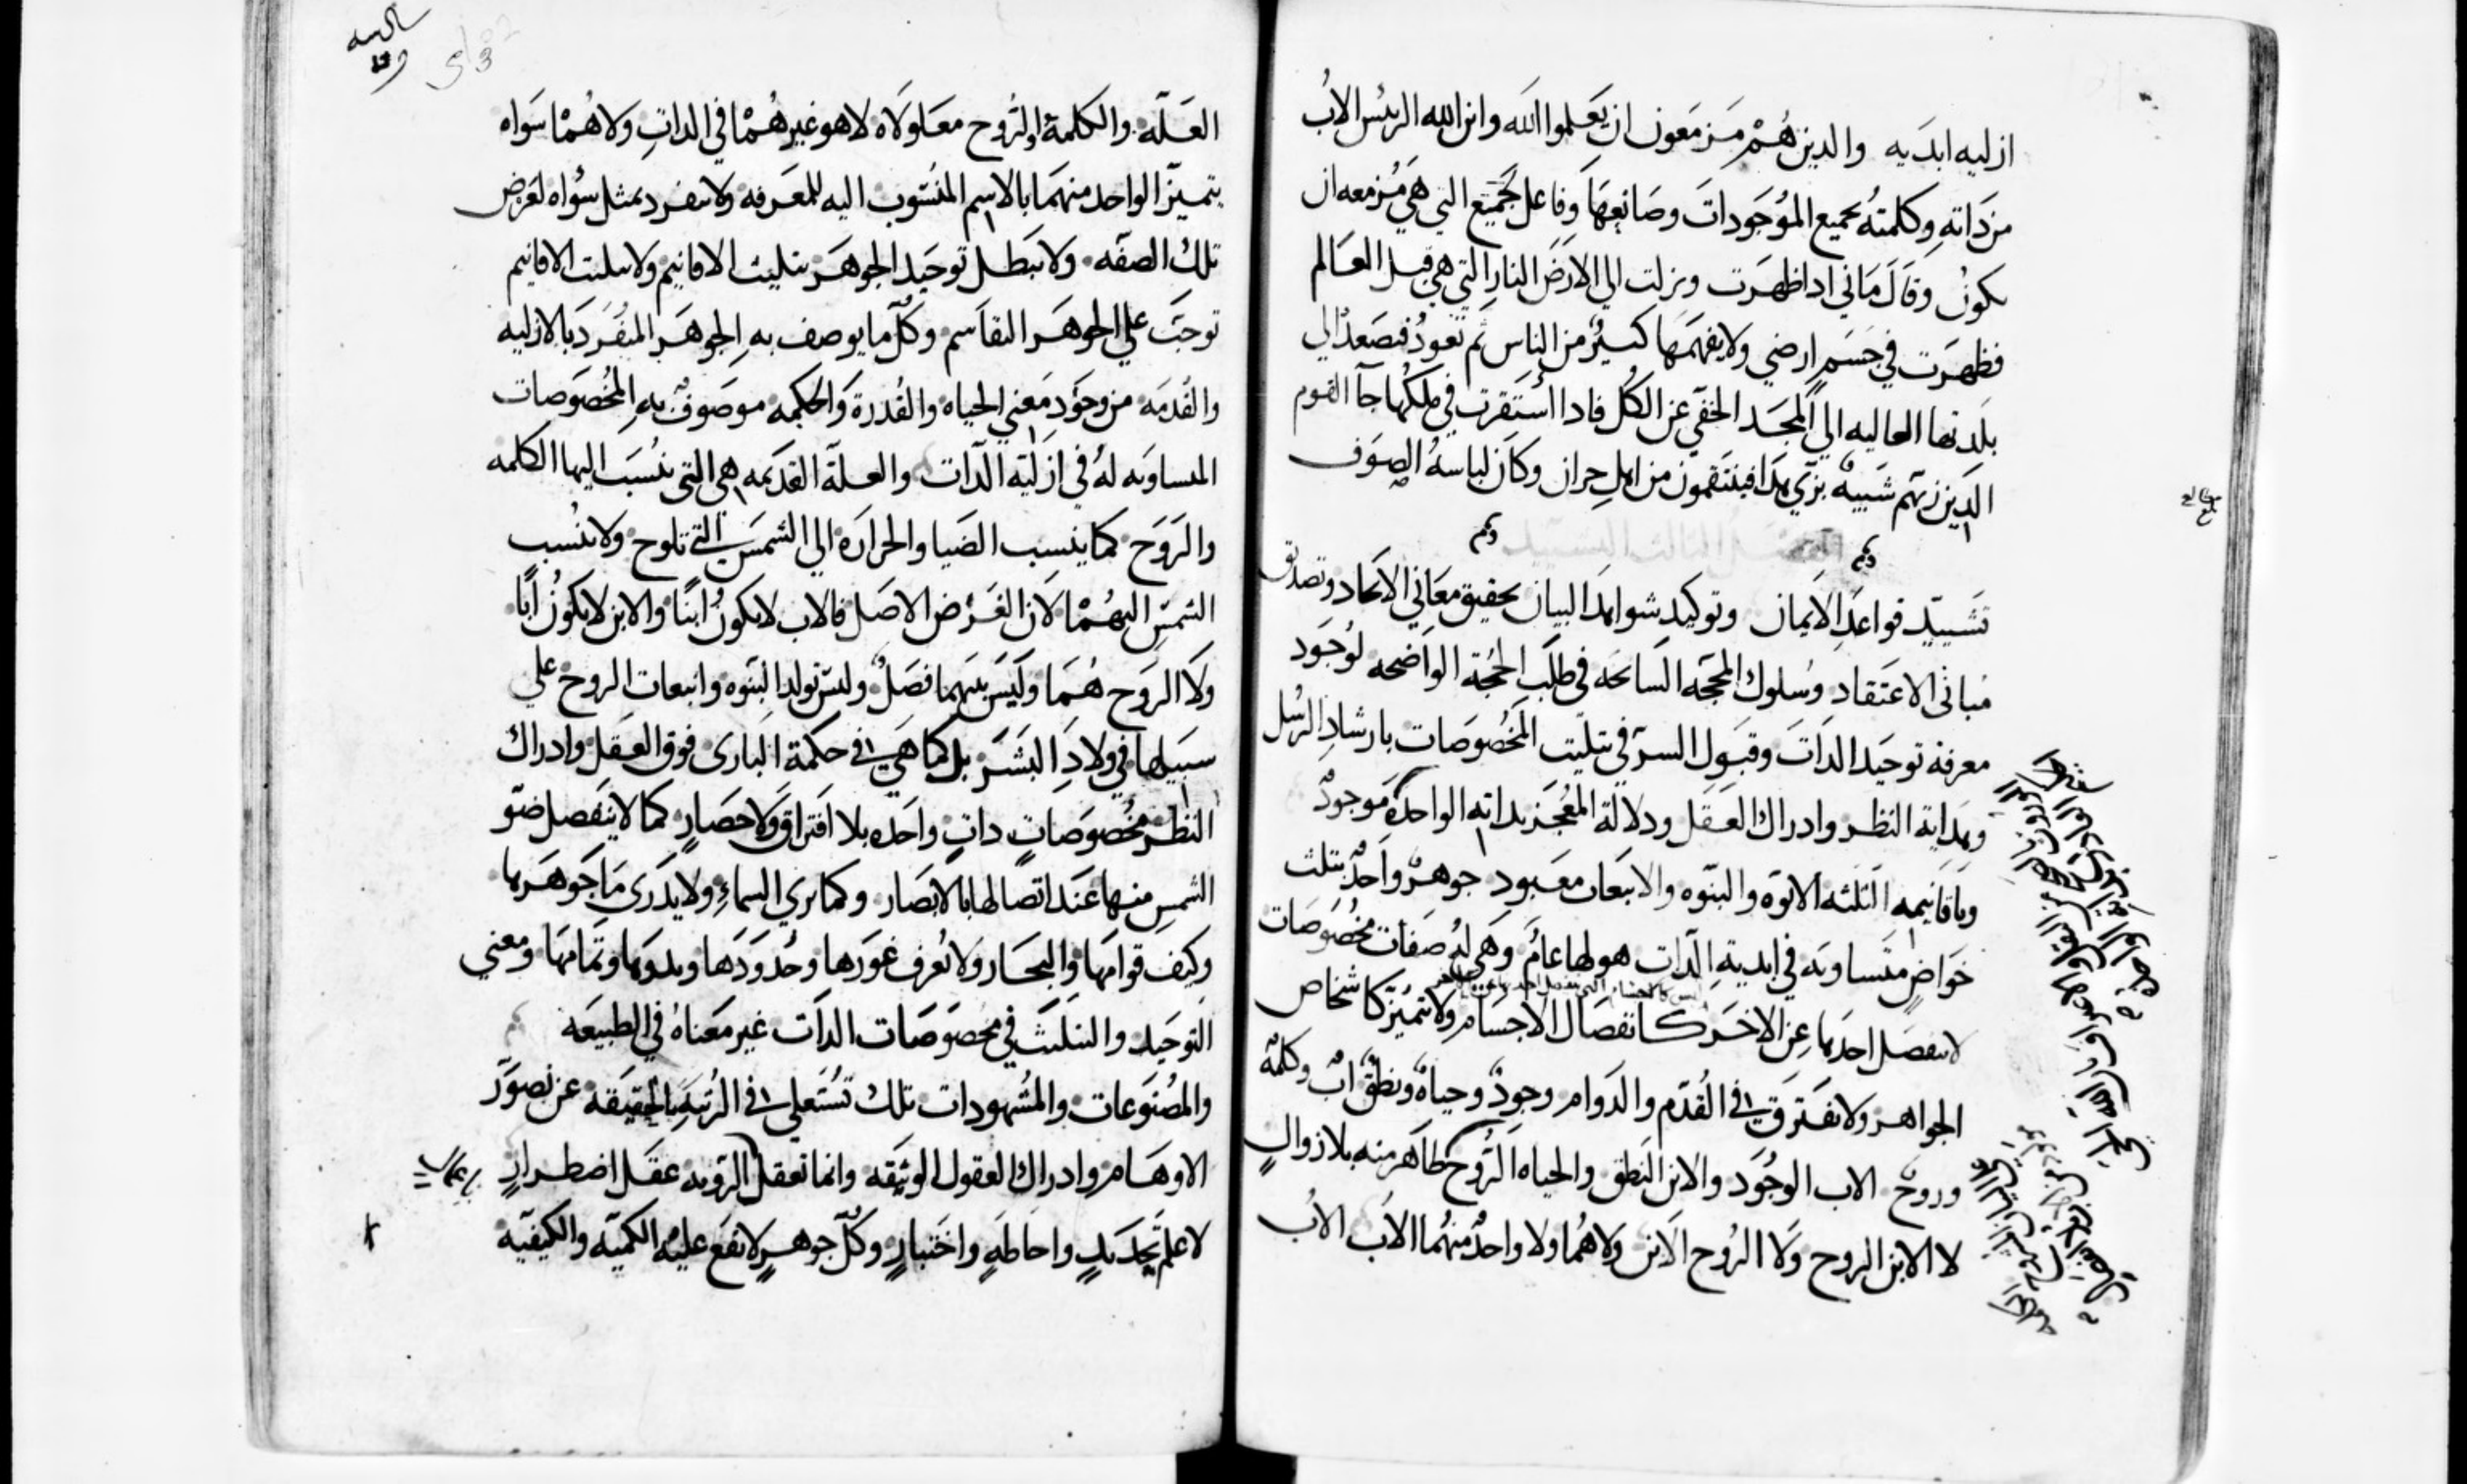 ازليه ابديه والدين هم مزمعون ان يعلموا الله وابن الله الرئيس الاب
من داته وكلمته بجميع الموجودات وصانعها وفاعل لجميع التي هي مزمعه ان
تكون وقال ماني ادا ظهرت ونزلت الي الارض النار التي هي قبل العالم
فظهرت في جسم ارضي ولا يفهمها كثير من الناس ثم تعود فتصعد الي
بلدتها العاليه الي المجد الخفي عن الكل فادا استقرت في ملكها جآ القوم
الدين زيهم شبيه بزي هدا فينتقمون من اهل حران وكان لباسه الصوف
تشييد قواعد الايمان وتوكيد شواهد البيان بحقيق معاني الاتحاد وتصديق
مباني الاعتقاد وسلوك المحجه السامحه في طلب الحجة الواضحه لوجود
معرفة توحيد الدات وقبول السر في تتليت المخصوصات بارشاد الرسل
وبهداية النظر وادراك العقل ودلالة المعجز بداته الواحدة موجود
وباقانيمه الثلثه الابوه والبنوه والانبعات معبود جوهر واحد بتلث
خواص متساويه في ابدية الدات هو لها عام وهي له صفات مخصوصات
لا ينفصل احدها عن الاخر كانفصال الاجسام ولا تميز كاشخاص
الجواهر ولا تفترق في القدم والدوام وجود وحياة ونطق اب وكلمة
وروح الاب الوجود والابن النطق والحياه الروح ظاهر منه بلا زوال
لا الابن الروح ولا الروح الابن ولا هما ولا واحد منهما الاب الاب
العله والكلمة والروح معلولاه لا هو غيرهما في الدات ولا هما سواه
يتميز الواحد منهما بالاسم المنسوب اليه للمعرفه ولا ينفرد بمثل سواه لغرض
تلك الصفه ولا يبطل توحيد الجوهر بتليت الاقانيم ولا تتليت الاقانيم
توجب علي الجوهر التقاسم وكل ما يوصف به الجوهر المنفرد بالازليه
والقدمه من وجود معني الحياه والقدرة والحكمه موصوف به المخصوصات
المساويه له في ازلية الدات والعلة القديمه هي التي ينسب اليها الكلمه
والروح كما ينسب الضيا والحراره الي الشمس التي تلوح ولا ينسب
الشمس اليهما لان الغرض الاصل فالاب لا يكون ابنا والابن لا يكون ابا
ولا الروح هما وليس بينهما فصل وليس تولد البنوه وانبعات الروح علي
سبيلها في ولاد البشر بل كما هي في حكمة الباري فوق العقل وادراك
النظر مخصوصات دات واحده بلا افتراق ولا حصار كما لا ينفصل ضو
الشمس منها عند اتصالها بالابصار وكما نري السماء ولا يدري ما جوهرها
وكيف قوامها والبحار ولا تعرف غورها وحدودها وبدوها وتمامها ومعني
التوحيد والتتليث في مخصوصات الدات غير معناه في الطبيعه
والمصنوعات والمشهودات تلك تستعلي في الرتبه بالحقيقه عن تصور
الاوهام وادراك العقول الوثيقه وانما تعقل الرؤيه عقل اضطرار
لا علم تحديد واحاطه واختبار وكل جوهر لا تقع عليه الكميه والكيفيه